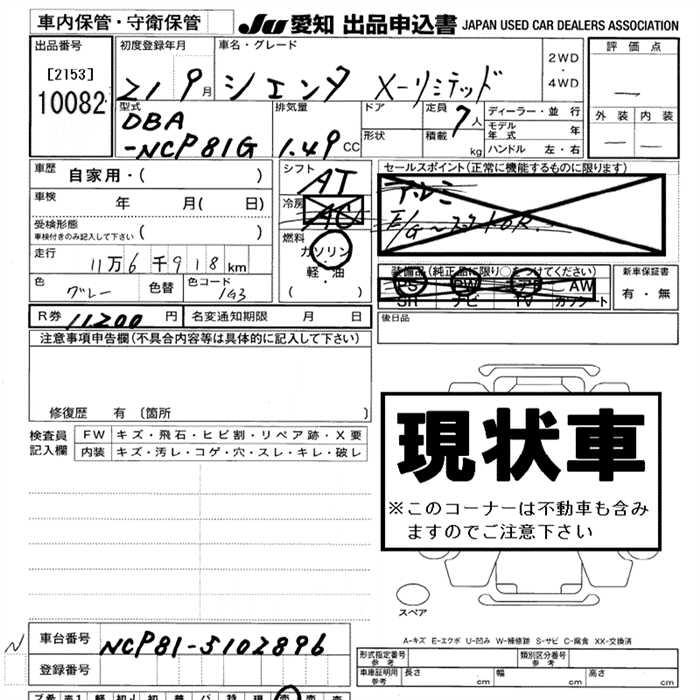 車内保管・守衛保管 JU 愛知 出品申込書 JAPAN USED CAR DEALERS ASSOCIATION
出品番号 初度登録年月 車名・グレード 2WD・4WD 評価点
[2153] 21 9月 シエンタ X-リミテッド —
10082 型式 排気量 ドア 定員 ディーラー・並行 外装 内装
DBA 7人 モデル年式 年 — —
-NCP81G 1.49CC 形状 積載 kg ハンドル 左・右
車歴 自家用・( ) シフト AT セールスポイント(正常に機能するものに限ります)
車検 年 月( 日) 冷房 AC
受検形態 車検付きのみ記入して下さい ( ) 燃料 ガソリン・軽・油 ( )
走行 11万6千918km 装備品(純正品に限り○をつけてください) 新車保証書
色 グレー 色替 色コード 1G3 PS PW アルミ AW 有・無
SR ナビ TV カセット
R券 11200円 名変通知期限 月 日 後日品
注意事項申告欄(不具合内容等は具体的に記入して下さい)
修復歴 有 〔箇所 〕
検査員記入欄 FW キズ・飛石・ヒビ割・リペア跡・X要
内装 キズ・汚レ・コゲ・穴・スレ・キレ・破レ
現状車
※このコーナーは不動車も含み
ますのでご注意下さい
スペア
A-キズ E-エクボ U-凹み W-補修跡 S-サビ C-腐食 XX-交換済
N 車台番号 NCP81-5102896
登録番号
形式指定番号 参考 類別区分番号 参考
車庫証明用 参考 長さ cm 幅 cm 高さ cm